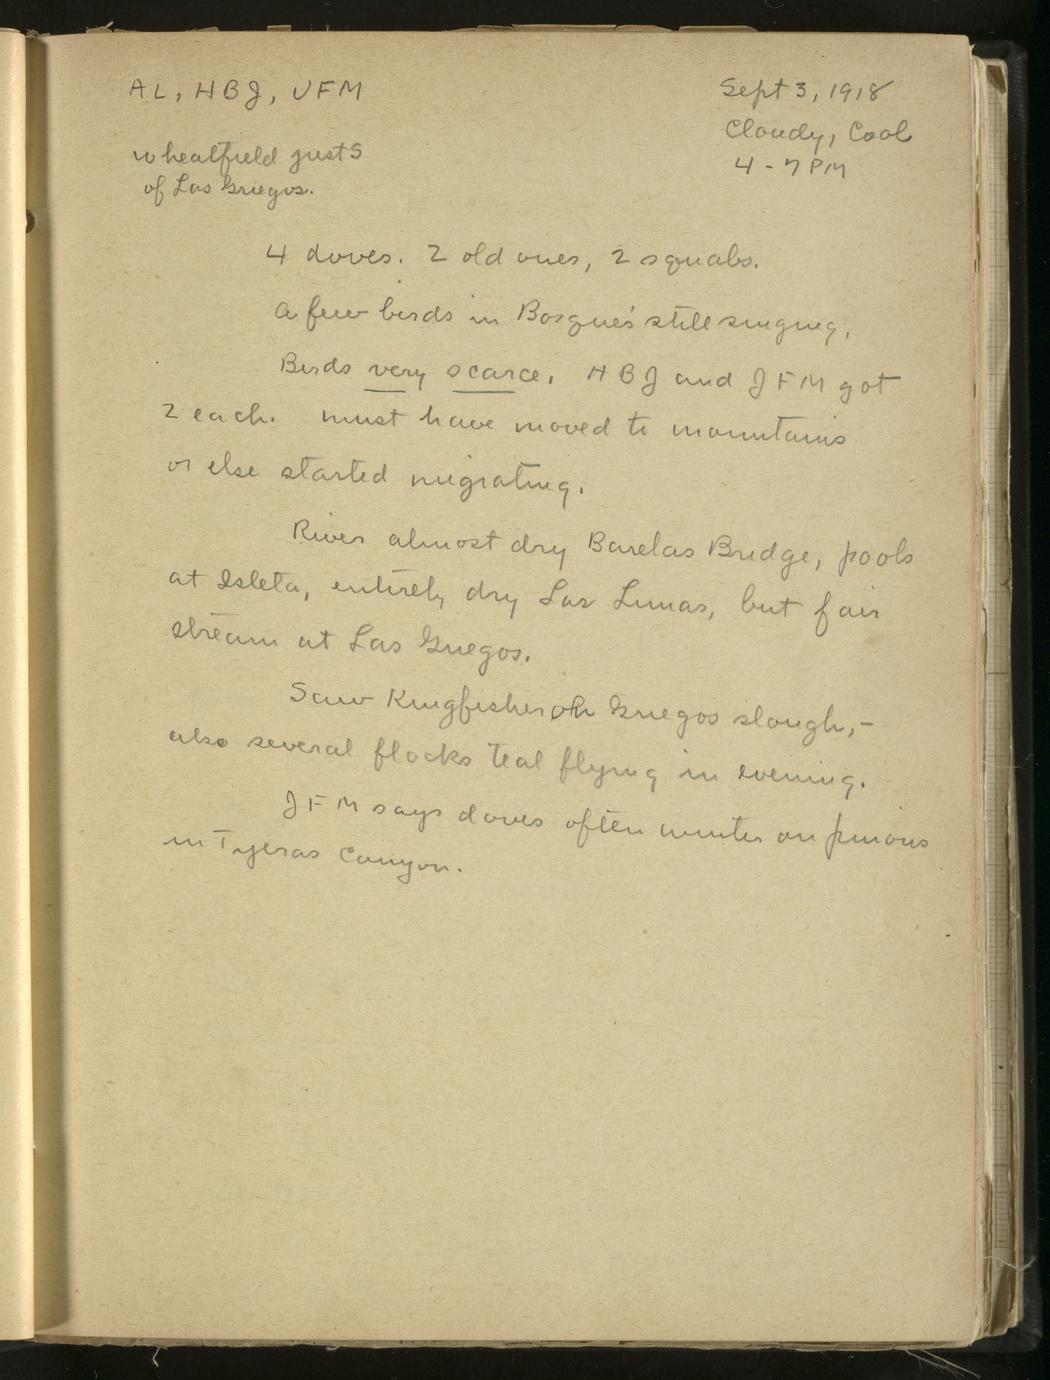 AL, HBJ, JFM
Sept 3, 1918
Cloudy, Cool
4 - 7 PM
Wheatfield just S
of Los Griegos.
4 doves. 2 old ones, 2 squabs.
A few birds in Bosques still singing.
Birds very scarce. HBJ and JFM got
2 each. Must have moved to mountains
or else started migrating.
River almost dry Barelas Bridge, pools
at Isleta, entirely dry Las Lunas, but fair
stream at Las Griegos.
Saw Kingfisher on Griegos slough,-
also several flocks teal flying in evening.
JFM says doves often winter on pinons
in Tyeras Canyon.